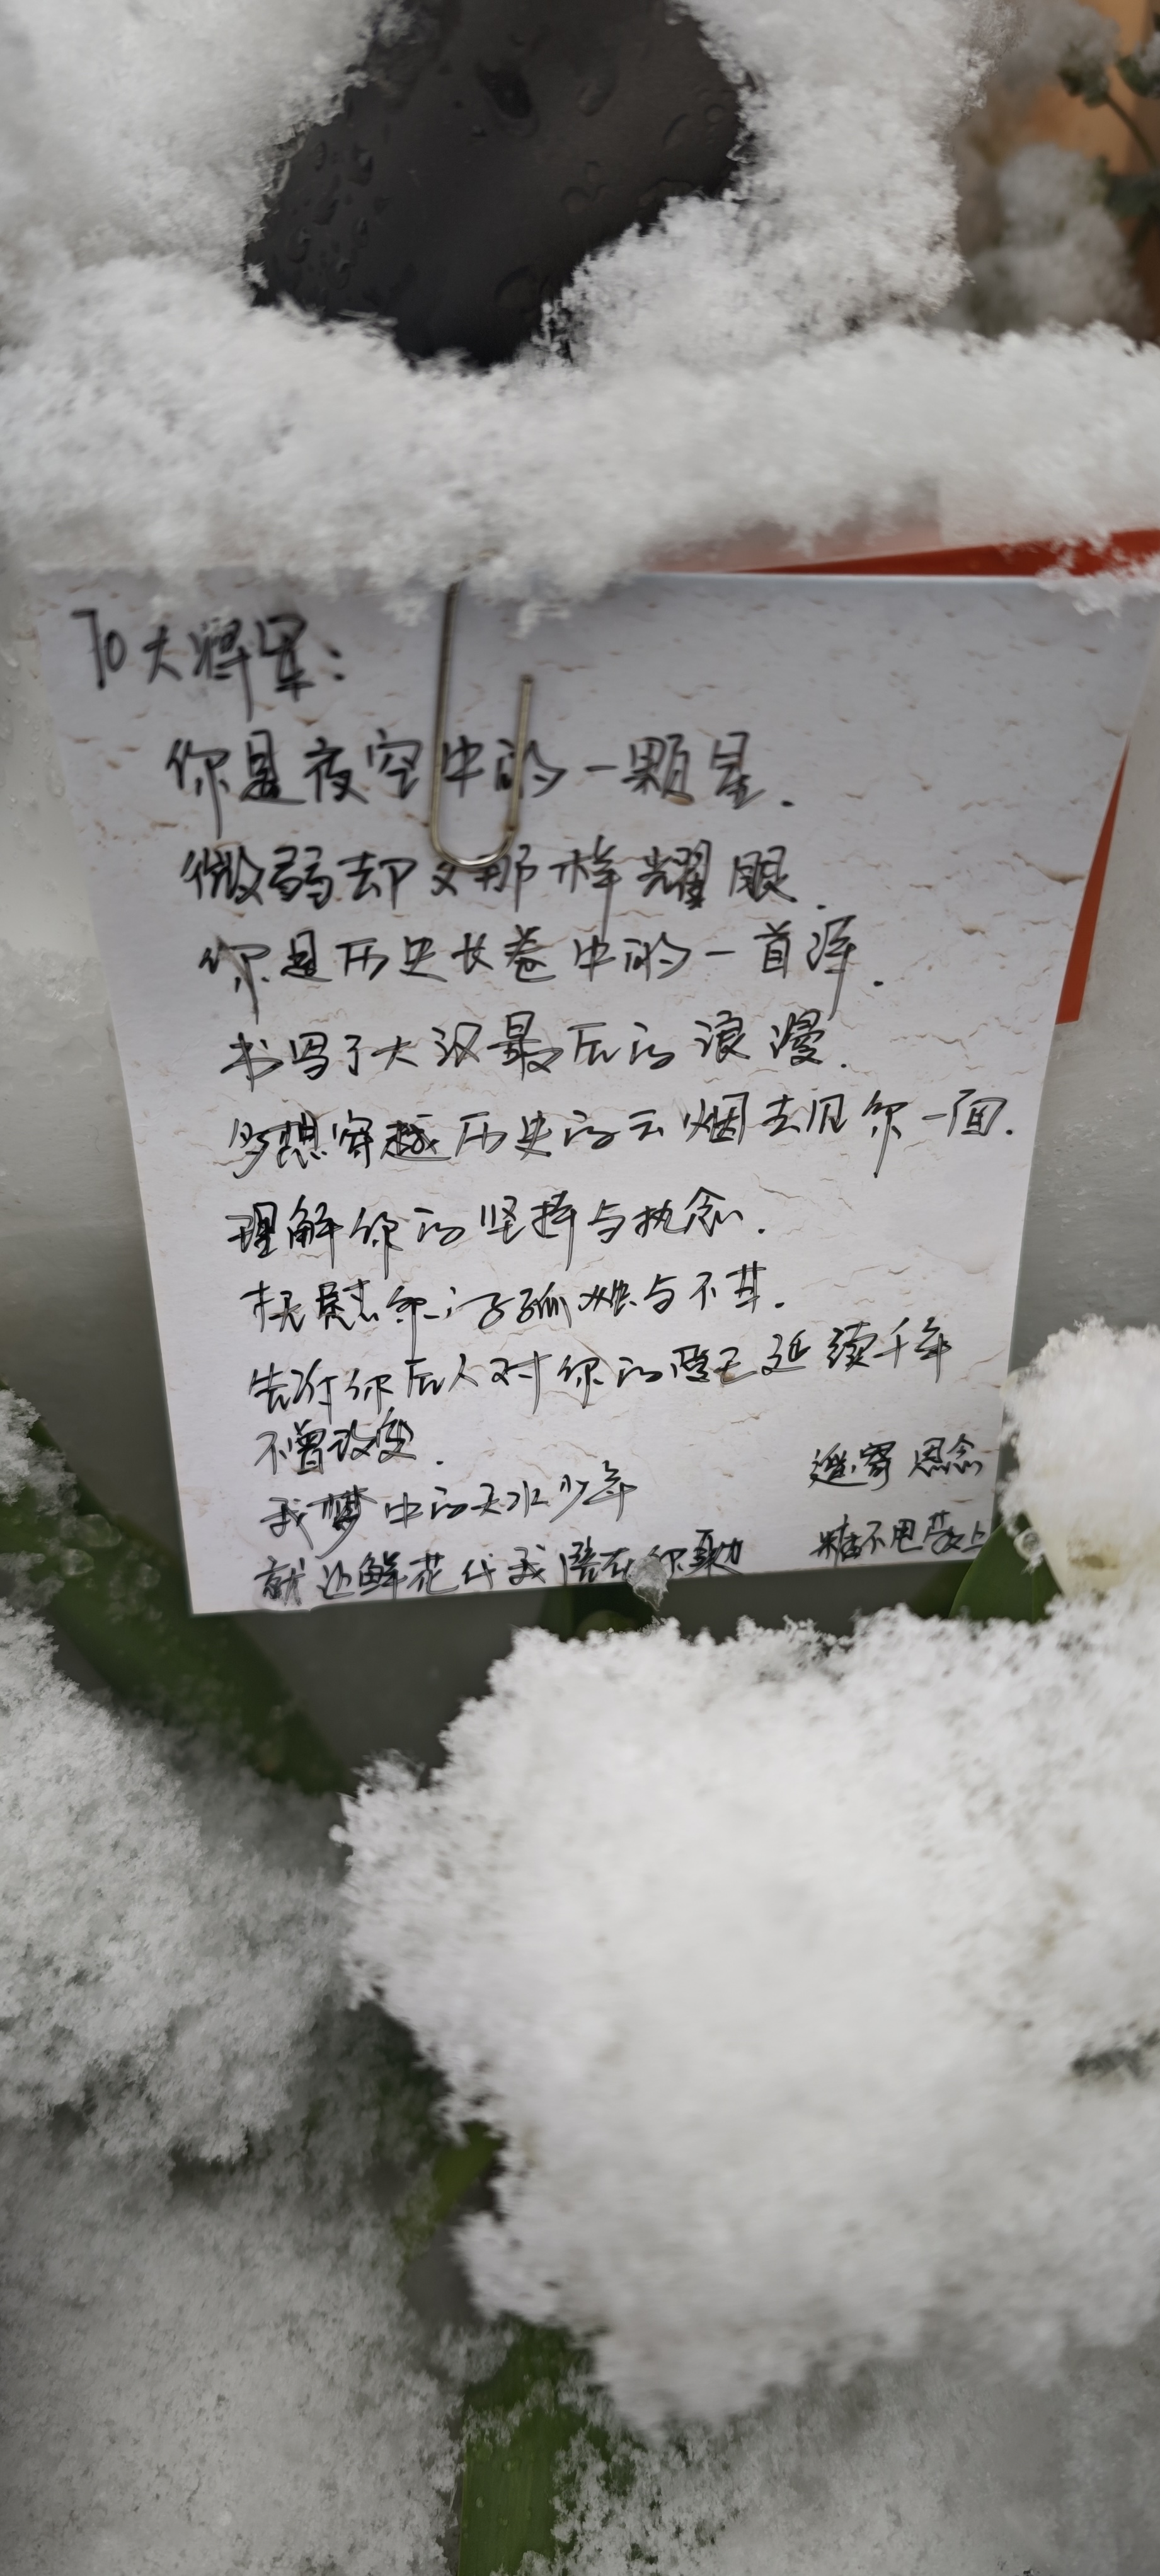 To 大将军：
你是夜空中的一颗星.
微弱却又那样耀眼.
你是历史长卷中的一首泽.
书写了大汉最后的浪漫.
多想穿越历史的云烟去见你一面.
理解你的坚持与执念.
抚慰你的孤独与不甘.
告诉你后人对你的爱已延续千年
不曾改变.
我梦中的天水少年
就让鲜花代我陪在你身边
遥寄思念
糖不甩